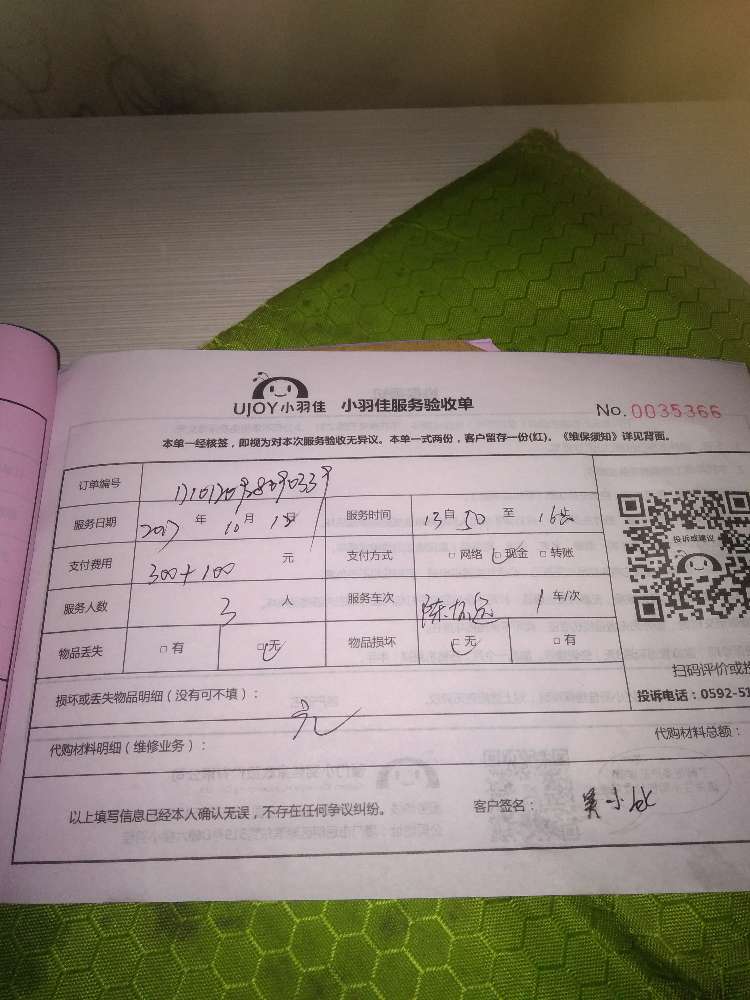 UJOY小羽佳 小羽佳服务验收单
No.0035366
本单一经核签，即视为对本次服务验收无异议。本单一式两份，客户留存一份(红)。《维保须知》详见背面。
订单编号
服务日期 2017 年 10 月 日 服务时间 13 自 50 至 16
投诉或建议
支付费用 300+100 元 支付方式 □网络 □现金 □转账
服务人数 3 人 服务车次 陈 1 车/次
物品丢失 □有 □无 物品损坏 □无 □有
扫码评价或投
损坏或丢失物品明细（没有可不填）：
投诉电话：0592-51
无
代购材料明细（维修业务）：
代购材料总额：
以上填写信息已经本人确认无误，不存在任何争议纠纷。 客户签名： 吴小